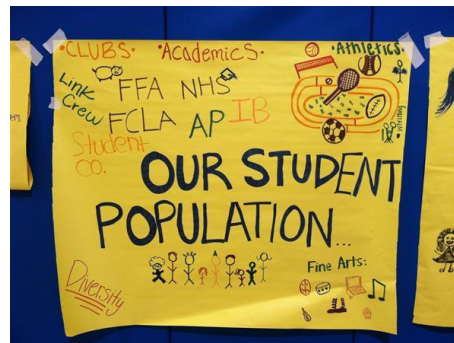 •CLUBS• •Academics• •Athletics•
Link Crew
FFA NHS
FCLA AP IB
Student CO.
OUR STUDENT
POPULATION...
Diversity
Fine Arts: